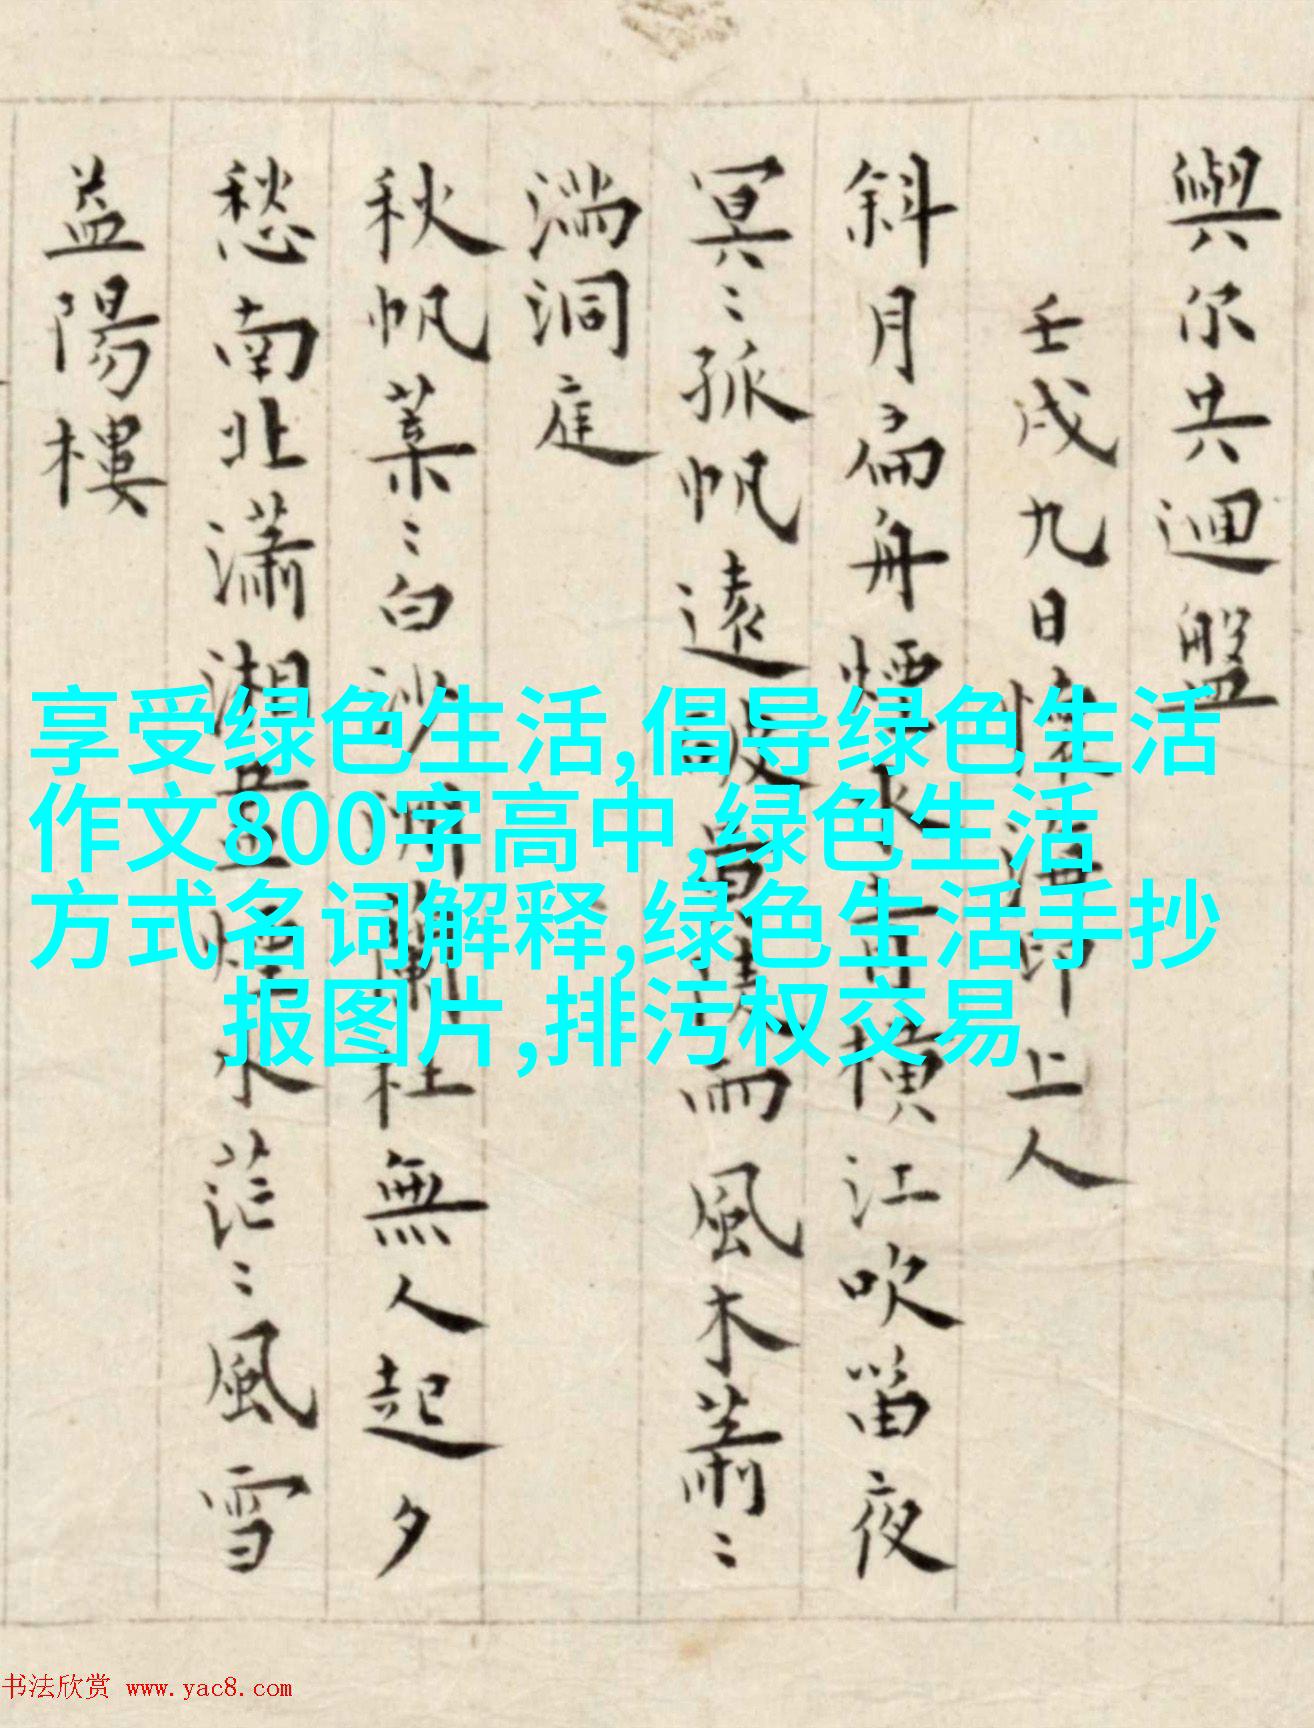 與尔共迴盤
壬戌九日懷海印上人
斜月扁舟煙水青橫江吹笛夜
冥〻孤帆遠 風木蕭〻
滿洞庭
秋帆葉〻白沙洲 杜無人起夕
愁南北瀟湘 水茫〻風雪
益陽樓
享受绿色生活,倡导绿色生活
作文800字高中,绿色生活
方式名词解释,绿色生活手抄
报图片,排污权交易
书法欣赏 www.yac8.com